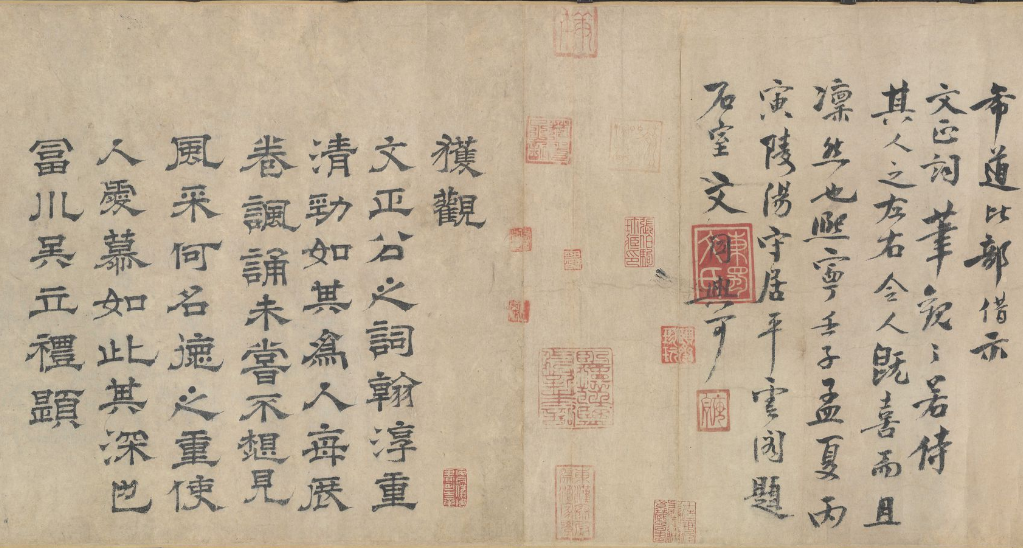 希道比部借示
文正詞筆觀之若侍
其人之左右令人既喜而且
凛然也熙寧壬子孟夏丙
寅陵陽守居平雲閣題
石室文同與可
東蜀文氏
獲觀
文正公之詞翰淳重
清勁如其為人每展
卷諷誦未嘗不想見
風采何名德之重使
人愛慕如此其深也
冨川吳立禮題